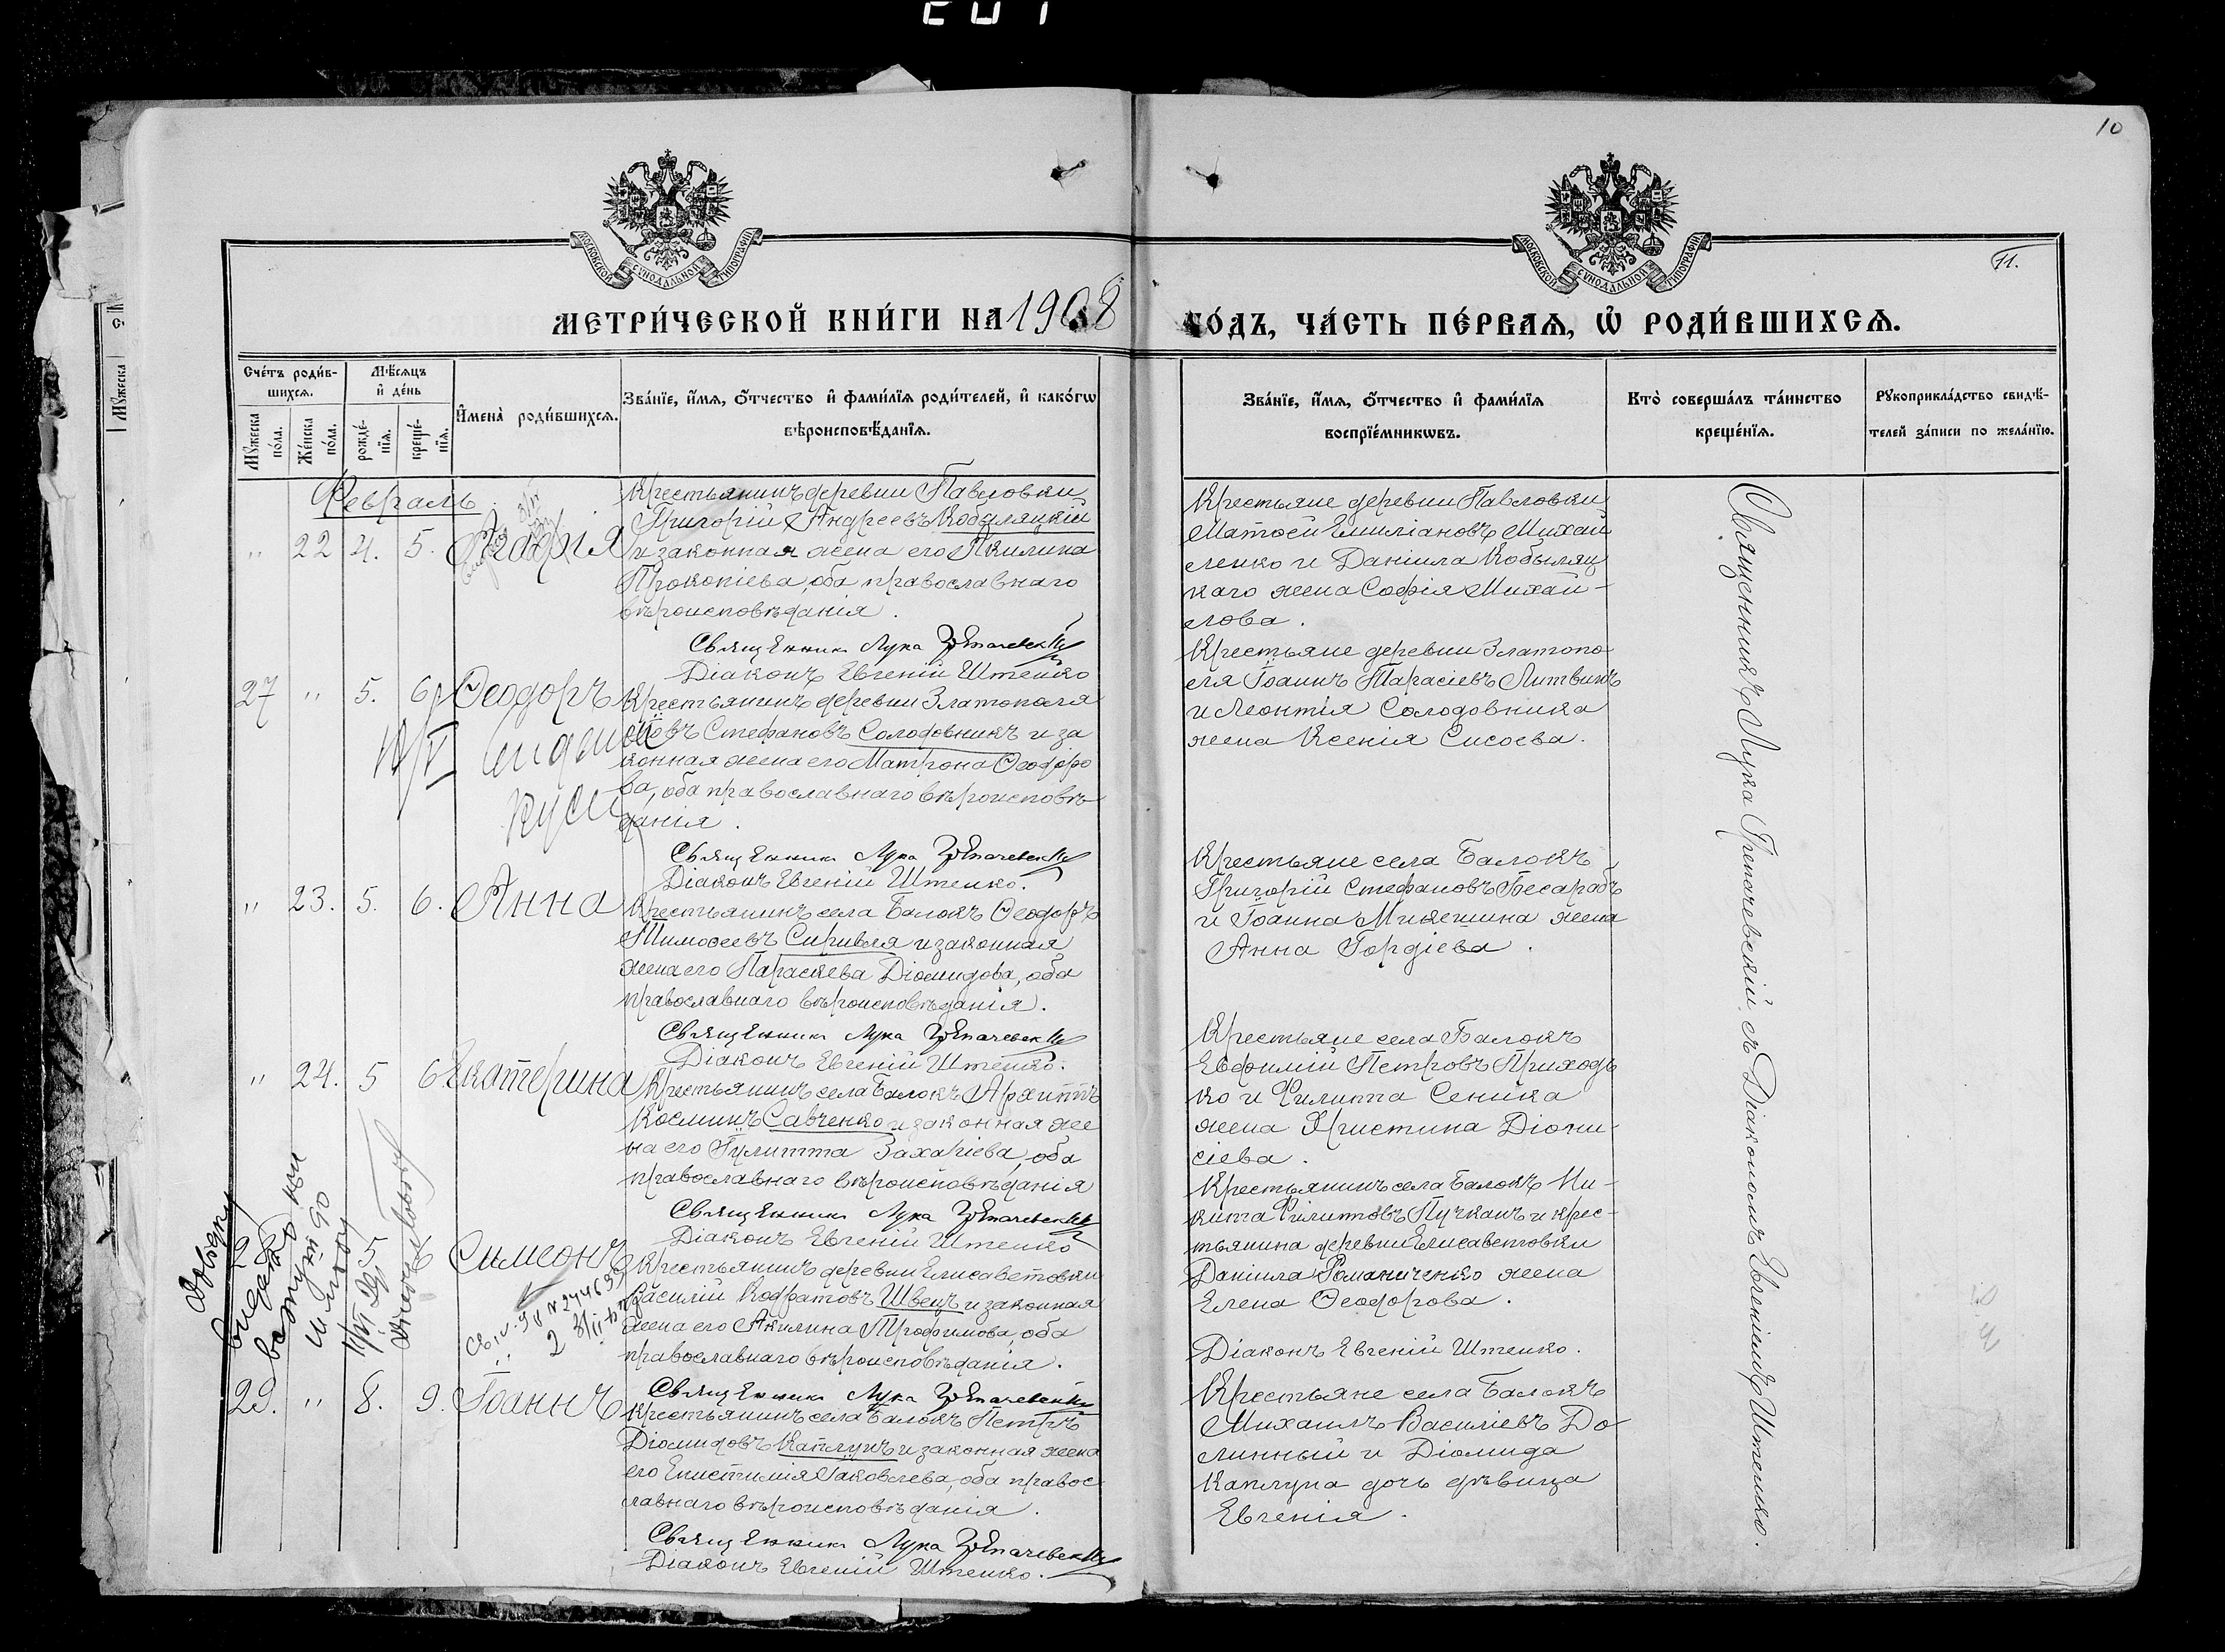 10
11.
МОСКОВСКОЙ СѴНОДАЛЬНОЙ ТИПОГРАФІИ
МОСКОВСКОЙ СѴНОДАЛЬНОЙ ТИПОГРАФІИ
МЕТРИ́ЧЕСКОЙ КНИ́ГИ НА 1908 ГО́ДЪ, ЧА́СТЬ ПЕ́РВАѦ, Ѽ РОДИ́ВШИХСѦ.
Сче́тъ роди́в-
шихсѧ.
Мѣ́сѧцъ
и҆ де́нь
Мꙋ́жеска
по́ла.
Же́нска
по́ла.
рожде́-
нїѧ.
креще́-
нїѧ.
И҆мена̀ роди́вшихсѧ.
Зва́нїе, и҆́мѧ, ѻ҆́тчество и҆ фами́лїѧ роди́телей, и҆ како́гѡ
вѣроисповѣ́данїѧ.
Зва́нїе, и҆́мѧ, ѻ҆́тчество и҆ фами́лїѧ
воспрїе́мникѡвъ.
Кто̀ соверша́лъ та́инство
креще́нїѧ.
Рꙋкоприкла́дство свидѣ́-
телей за́писи по жела́нїю.
Февраль
" 22 4. 5. Агафія
Крестьянинъ деревни Павловки
Григорій Андреевъ Кобыляцкій
и законная жена его Акилина
Прокопіева, оба православнаго
вѣроисповѣданія.
Священникъ Лука Грепачевскій
Діаконъ Евгеній Штепко
Крестьяне деревни Павловки
Матѳей Емиліановъ Михай
ленко и Даніила Кобыляц
каго жена Софія Михай-
лова.
27 " 5. 6. Ѳеодоръ
Крестьянинъ деревни Златополя
Іовъ Стефановъ Солодовникъ и за
конная жена его Матрона Ѳеодоро
ва, оба православнаго вѣроисповѣ-
данія.
Священникъ Лука Грепачевскій
Діаконъ Евгеній Штепко.
Крестьяне деревни Златопо-
ля Іоаннъ Тарасіевъ Литвинъ
и Леонтія Солодовника
жена Ксенія Сисоева.
" 23. 5. 6. Анна
Крестьянинъ села Балокъ Ѳеодоръ
Тимоѳеевъ Сиривля и законная
жена его Параскева Діомидова, оба
православнаго вѣроисповѣданія.
Священникъ Лука Грепачевскій
Діаконъ Евгеній Штепко.
Крестьяне села Балокъ
Григорій Стефановъ Бесарабъ
и Іоанна Микешина жена
Анна Гордіева.
" 24. 5 6. Екатерина
Крестьянинъ села Балокъ Архиппъ
Косминъ Савченко и законная же
на его Іулитта Захаріева, оба
православнаго вѣроисповѣданія
Священникъ Лука Грепачевскій
Діаконъ Евгеній Штепко
Крестьяне села Балокъ
Евфимій Петровъ Приходь
ко и Филиппа Сеника
жена Христина Діони-
сіева.
Симеонъ
Крестьянинъ деревни Елисаветовки
Василій Кодратовъ Швецъ и законная
жена его Акилина Трофимова, оба
православнаго вѣроисповѣданія.
Священникъ Лука Грепачевскій
Крестьянинъ села Балокъ Ни-
кита Филипповъ Пучканъ и крес-
тьянина деревни Елисаветовки
Даніила Романиченко жена
Елена Ѳеодорова.
Діаконъ Евгеній Штепко.
29. " 8. 9. Іоаннъ
Крестьянинъ села Балокъ Петръ
Діомидовъ Каплунъ и законная жена
его Епистимія Іаковлева, оба правос
лавнаго вѣроисповѣданія.
Священникъ Лука Грепачевскій
Діаконъ Евгеній Штепко.
Крестьяне села Балокъ
Михаилъ Василіевъ До
линный и Діомида
Каплуна дочь дѣвица
Евгенія.
Священникъ Лука Грепачевскій съ Діакономъ Евгеніемъ Штепко.